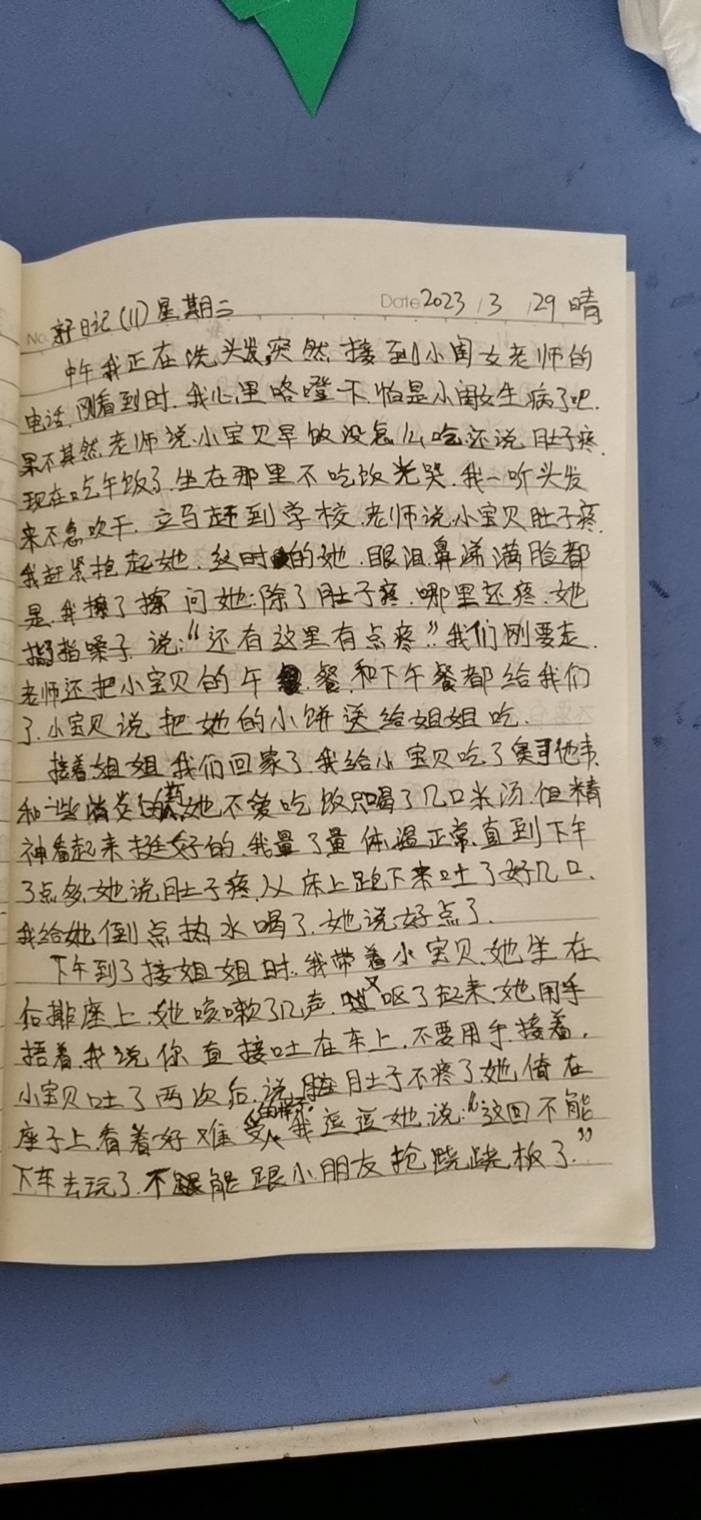 No. 好日记(11)星期二 Date 2023 / 3 / 29 晴
中午我正在洗头发,突然,接到小闺女老师的
电话,刚看到时,我心里咯噔一下,怕是小闺女生病了吧.
果不其然,老师说,小宝贝早饭没怎么吃还说肚子疼.
现在吃午饭了,坐在那里不吃饭光哭.我一听头发
来不急吹干,立马赶到学校.老师说小宝贝肚子疼.
我赶紧抱起她.这时的她,眼泪鼻涕满脸都
是.我擦了擦问她:除了肚子疼,哪里还疼.她
指指嗓子说:“还有这里有点疼”.我们刚要走.
老师还把小宝贝的午餐,和下午餐都给我们
了.小宝贝说把她的小饼送给姐姐吃.
接着姐姐我们回家了.我给小宝贝吃了奥司他韦.
和一些消炎的药,她不爱吃饭只喝了几口米汤.但精
神看起来挺好的.我量了量体温正常.直到下午
3点多,她说肚子疼,从床上跑下来吐了好几口.
我给她倒点热水喝了.她说好点了.
下午到了接姐姐时.我带着小宝贝.她坐在
后排座上.她咳嗽了几声.又呕了起来.她用手
捂着.我说你直接吐在车上,不要用手接着.
小宝贝吐了两次后.说肚子不疼了她倚在
座子上,看着好难受的样子.我逗逗她说:“这回不能
下车去玩了.不能跟小朋友抢跷跷板了.”